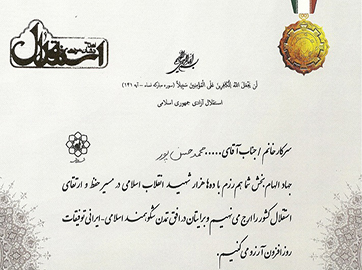 لن يجعل الله للكافرين على المؤمنين سبيلاً (سوره مبارکه نساء - آیه ۱۴۱)
استقلال آزادی جمهوری اسلامی
سرکار خانم / جناب آقای ..... محمدحسن پور
جهاد الهام بخش شما هم رزم با ده ها هزار شهید انقلاب اسلامی در مسیر حفظ و ارتقای
استقلال کشور را ارج می نهیم و برایتان در افق تمدن شکوهمند اسلامی-ایرانی توفیقات
روزافزون آرزو می کنیم.